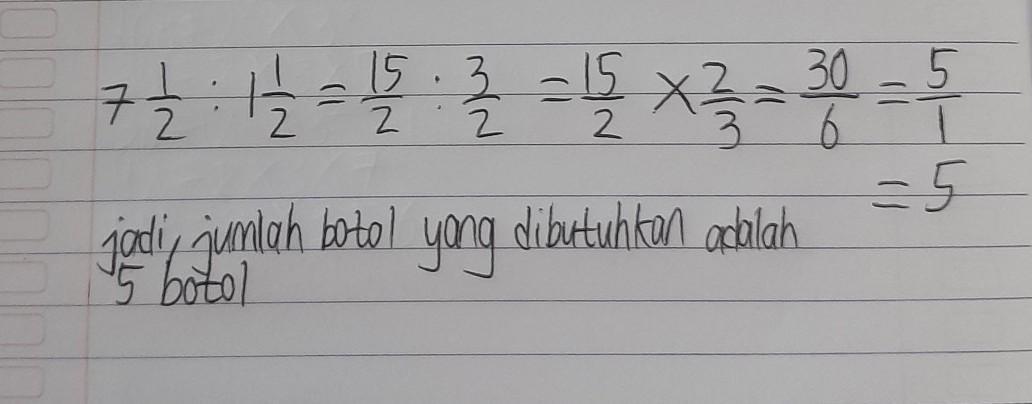 7 1/2 : 1 1/2 = 15/2 : 3/2 = 15/2 × 2/3 = 30/6 = 5/1
= 5
jadi, jumlah botol yang dibutuhkan adalah
5 botol